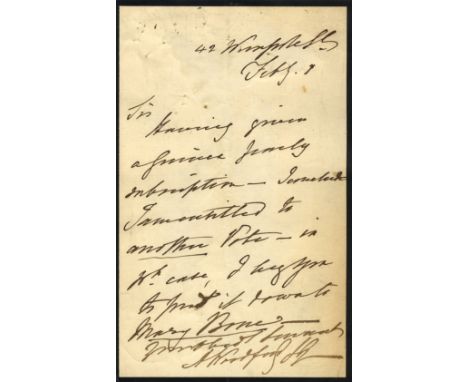 42 Wimpole St
Feby. 1
Sir
Having given
a Guinea yearly
subscription – I conclude
I am entitled to
another Vote – in
wh. case, I beg you
to put it down to
Mary Bone –
Your obedt Servant